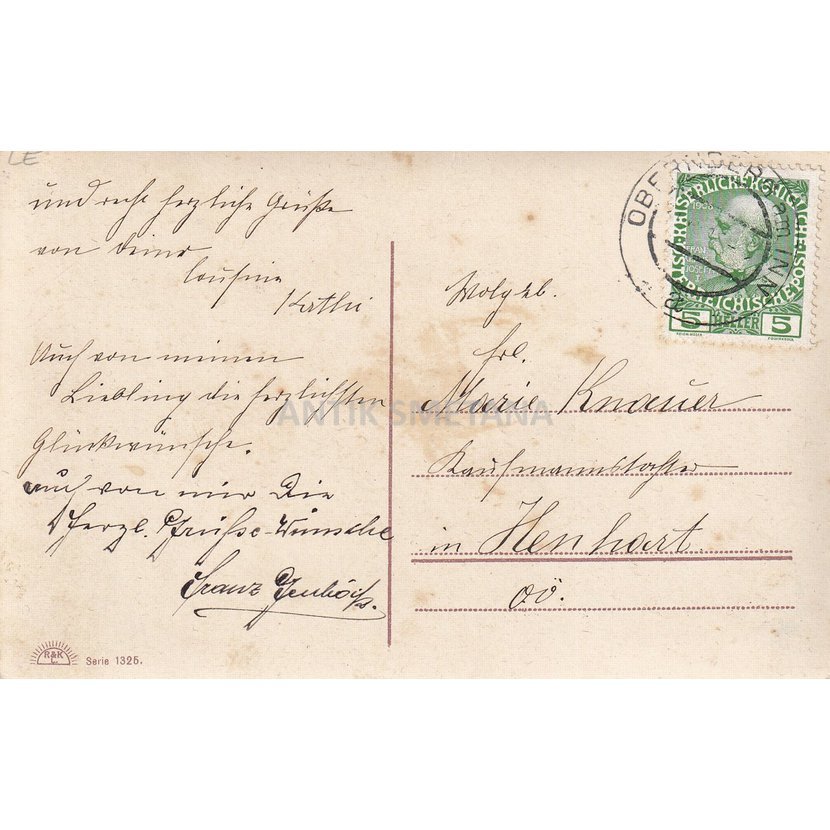 LE
und recht herzliche Grüße
von Deiner
Cousine
Kathi
Auch von meinen
Liebling die herzlichsten
Glückwünsche.
auch von mir Die
Herzl. Grüße-Wünsche
Franz
R&K
L.
Serie 1325.
OBERNBERG am INN
KAISERLICHE KÖNIGLICHE POST
ÖSTERREICHISCHE
1908
FRANZ
JOSEF I.
5 HELLER 5
Wolgeb.
Frl.
Marie Knauer
Kaufmannstochter
in Henhart
OÖ.
ANTIK SMETANA